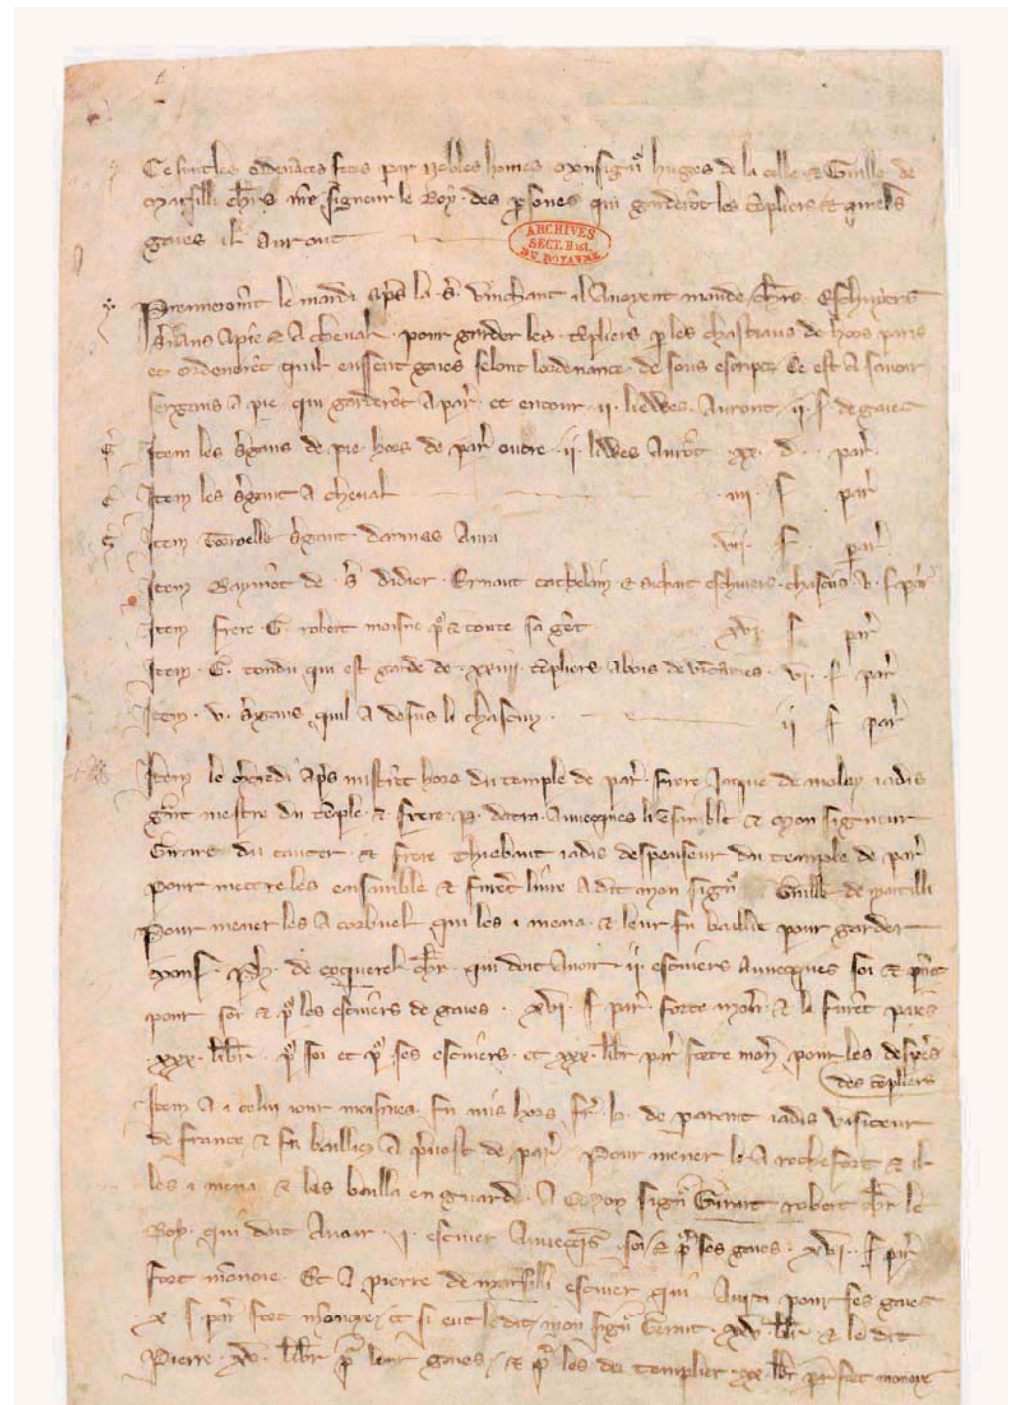 Ce sunt les ordenāces fetes par nobles homes monsign̄r hugues de la celle ⁊ Guille de
Marsilli ch̄rs nr̄e signeur le Roy des ꝑsones qui garderōt les tēpliers et quels
gaies il auront
ARCHIVES
SECT. Hist.
DU ROYAUME
Premieremt le mardi ap̄s la s̄ Vinchant il avoyent mandé ch̄rs Eschuyers
s̄ians a pie ⁊ a cheval pour garder les tēpliers ꝑ les chastiaus de hors paris
et ordenerēt quil eussent gaies selont lordenance de sous escripte Ce est a savoir
sergens a pie qui garderōt a par̄ et entour ii liewes auront ii s de gaies
Item les s̄gans de pie hors de par̄ outre ii liwes aurōt xx d par̄
Item les s̄gant a cheval iiii s par̄
Item s̄gant darmes aura vii s par̄
Item Raymōt de s̄ didier Ernaut ⁊ eschuiers chascūs v s par̄
Item frere G robert moisne ⁊ toute sa gēt xvi s par̄
Item G tondu qui est garde de xxiiii tēpliers a bois de vi s par̄
Item v s̄gans quil a desus li chascun ii s par̄
Item le ap̄s mistrēt hors du temple de par̄ frere Jaque de moley iadis
gn̄t mestre du tēple ⁊ frere avecques li ēsamble ⁊ mon signeur
Girars du ⁊ frere Thiebaut iadis despenseur du temple de par̄
pour mettre les ensamble ⁊ furēt livre a dit mon sign̄r Guille de marcilli
Pour mener les a corbuel qui les i mena ⁊ leur fu baillie pour garder
mons Ph de coquerel ch̄r qui doit avoir ii escuiers avecques soi ⁊ pn̄t
pour soi ⁊ pr̄ les escuiers de gaies xvi s par̄ forte mon̄ ⁊ le furēt paies
xxx libr̄ pr̄ soi et pr̄ ses escuiers et xxx libr̄ par̄ forte mon̄ pour les despēs
des tēpliers
Item a i celui iour moismes fu mis hors fr̄ h de parent iadis visiteur
de france ⁊ fu baillies a p̄vost de par̄ Pour mener le a rochefort ⁊ il
les i mena ⁊ les bailla en guarde a mon sign̄r Girart robert ch̄r le
Roy qui doit avoir i escuier avecques soi ⁊ pr̄ ses gaies xvi s par̄
fort monoie Et a pierre de marsilli escuier qui aura pour ses gaies
x s par̄ fort monoye et si eut le dit mon sign̄r Girart xxv libr̄ ⁊ le dit
Pierre xv libr̄ pr̄ leur gaies ⁊ pr̄ les des templier xx libr̄ par̄ fort monoie